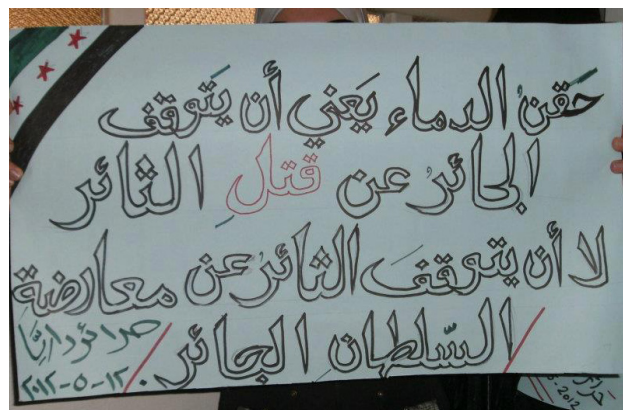 حَقنُ الدماء يَعني أن يَتوقف
الجائرُ عن قتلِ الثائر
لا أن يتوقفَ الثائرُ عن معارضةِ
السّلطانِ الجائر.
حرائر داريّا
١٢-٥-٢٠١٢